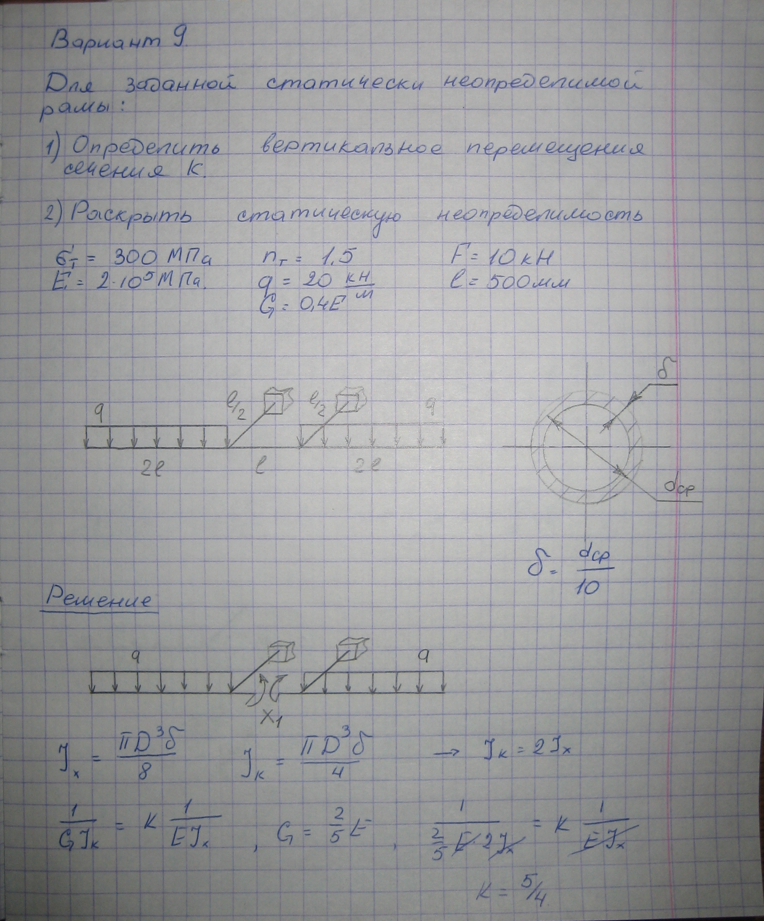 Вариант 9.
Для заданной статически неопределимой
рамы:
1) Определить вертикальное перемещения
сечения К.
2) Раскрыть статическую неопределимость
σт = 300 МПа nт = 1.5 F = 10 кН
E = 2·10⁵ МПа. q = 20 кн/м l = 500мм
G = 0,4E
q l/2 l/2 q δ
2l l 2l dср
δ = dср/10
Решение
q q
X₁
Jx = πD³δ/8 Jк = πD³δ/4 → Jк = 2Jx
1/GJк = К 1/EJx , G = 2/5 E , 1/(2/5 E 2Jx) = К 1/EJx
К = 5/4